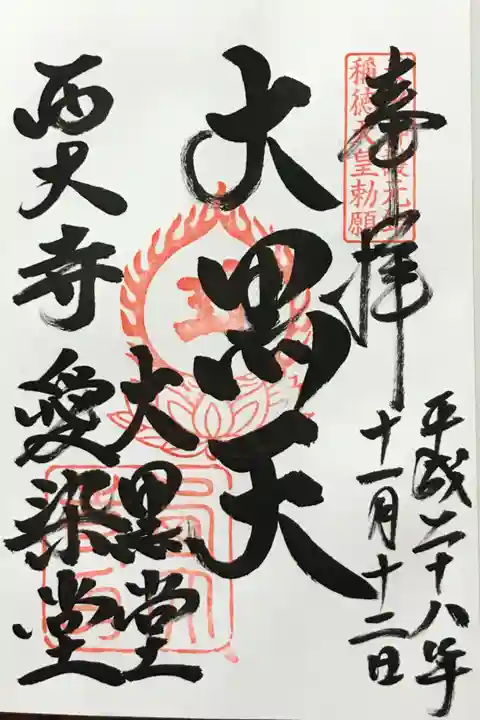 奉拝
稲徳天皇勅願
平成二十八年
十一月十二日
大黒天
大黒堂
西大寺 愛染堂